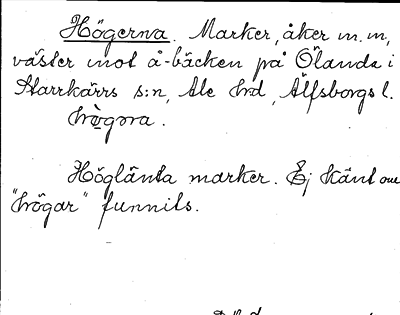 Högerna. Marker, åker m.m,
väster mot å-bäcken på Ölanda i
Starrkärrs s:n, Ale hd, Älfsborgs l.
hògora.
Höglänta marker. Ej känt om
"högar" funnits.